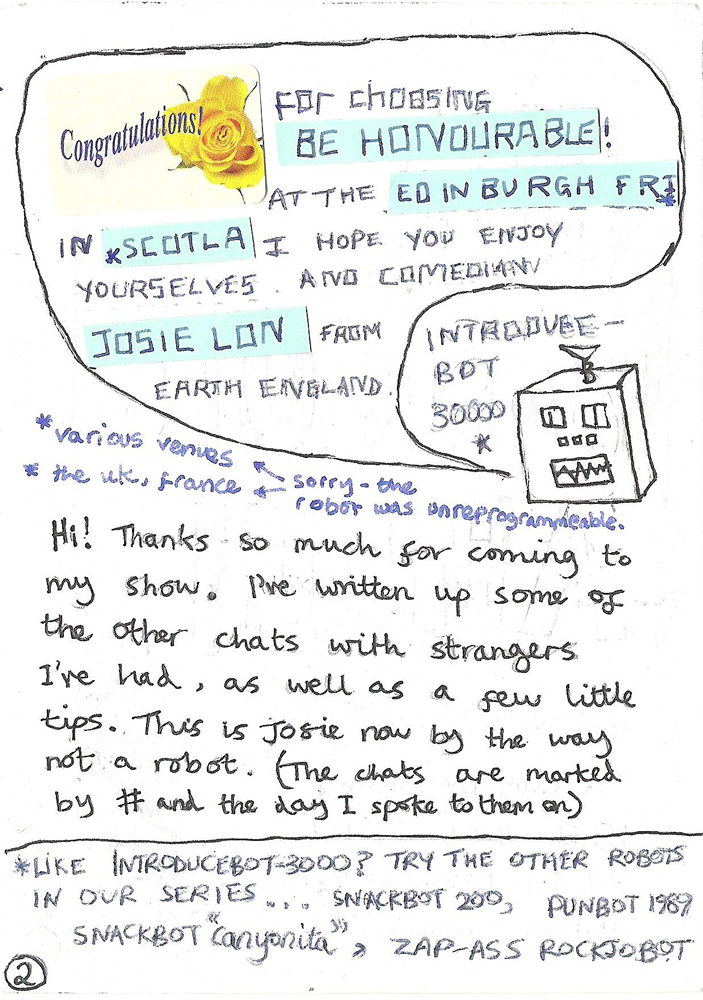 Congratulations!
FOR CHOOSING
BE HONOURABLE!
AT THE EDINBURGH FRI
*
IN *SCOTLA I HOPE YOU ENJOY
YOURSELVES. AND COMEDIANN
JOSIE LON FROM
EARTH ENGLAND.
INTRODUCEE-
BOT
30000
*
* various venues
* the uk, france
sorry - the
robot was unreprogrammeable.
Hi! Thanks so much for coming to
my show. I've written up some of
the other chats with strangers
I've had, as well as a few little
tips. This is Josie now by the way
not a robot. (The chats are marked
by # and the day I spoke to them on)
*LIKE INTRODUCEBOT-3000? TRY THE OTHER ROBOTS
IN OUR SERIES... SNACKBOT 200, PUNBOT 1989
SNACKBOT "Canyonita", ZAP-ASS ROCKJOBOT
2